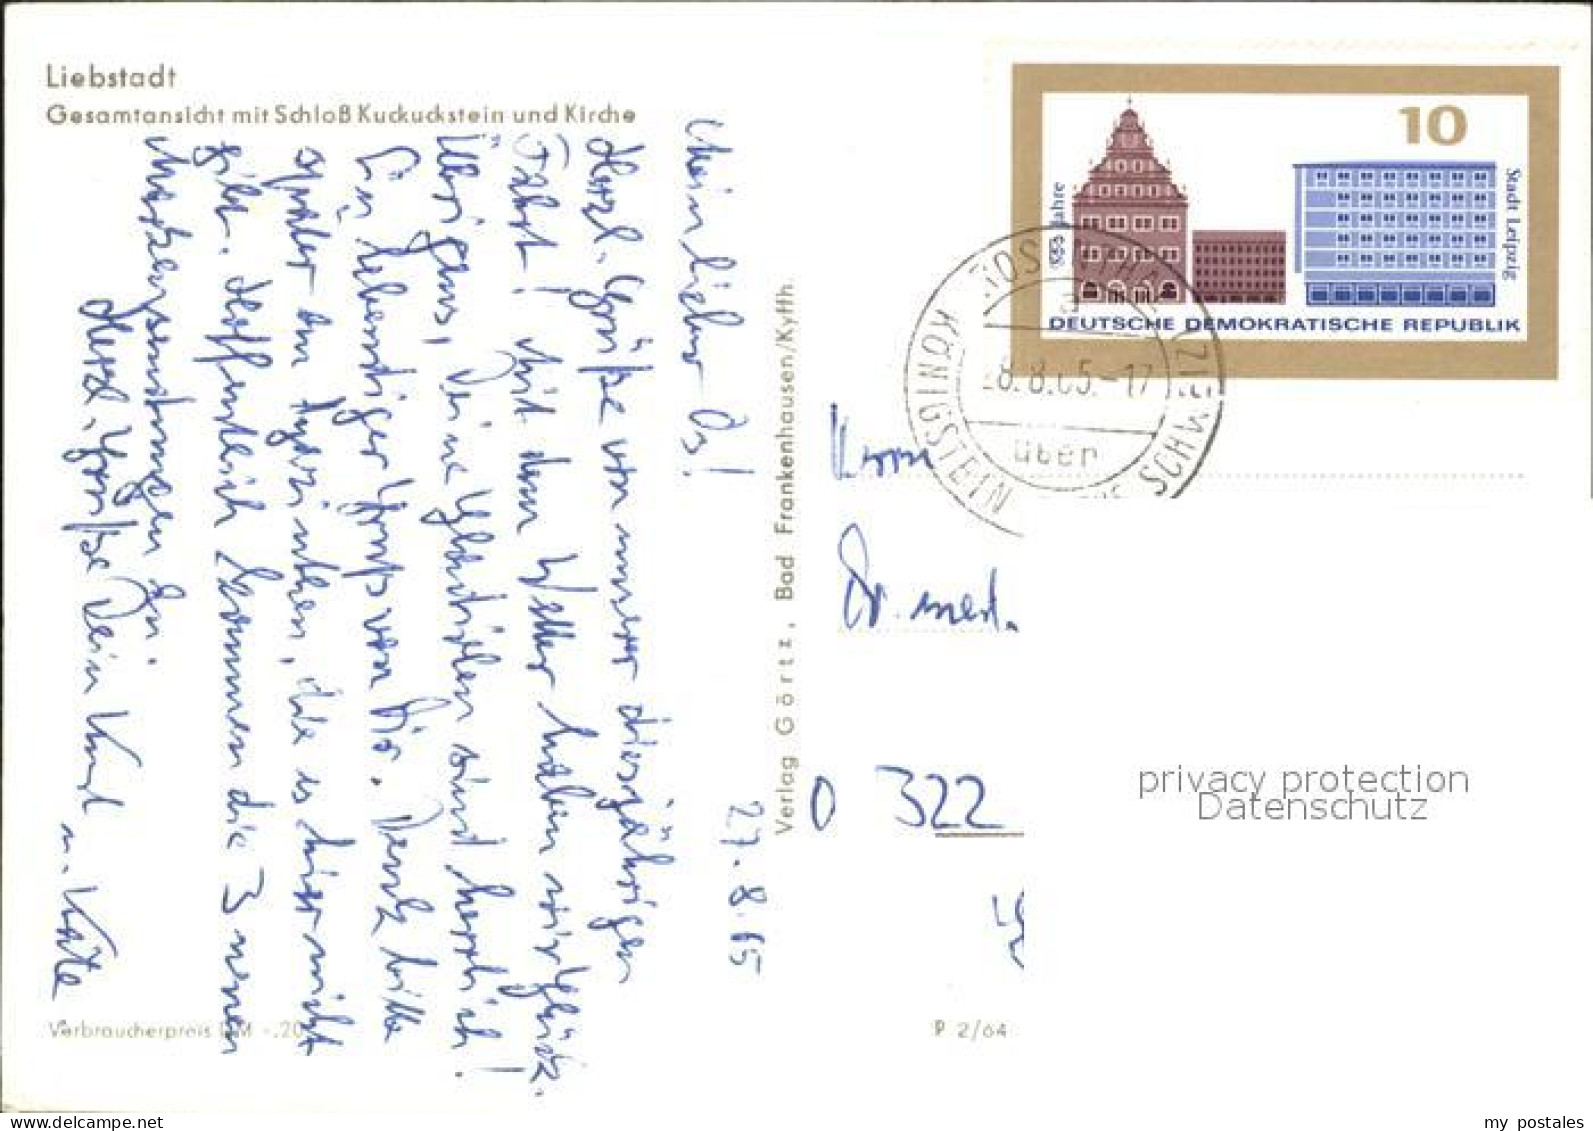 Liebstadt
Gesamtansicht mit Schloß Kuckuckstein und Kirche
27.8.65
Mein lieber
Herzl. Grüße von unserer diesjährigen
Fahrt! Mit dem Wetter haben wir Glück.
Übrigens, Deine sind herrlich!
Ein lebendiger Gruß von Dir. Denk bitte
später an Hyazinthen, die es hier nicht
gibt. Hoffentlich kommen die 3 neuen
an.
Herzl. Grüße Dein Kurt u. Käte
Verbraucherpreis DM -.20
Verlag Görtz, Bad Frankenhausen/Kyffh.
P 2/64
10
Jahre
Stadt Leipzig
DEUTSCHE DEMOKRATISCHE REPUBLIK
KÖNIGSTEIN
8.8.65.-17
über
Herrn
Dr. med.
O 322
privacy protection
Datenschutz
my postales